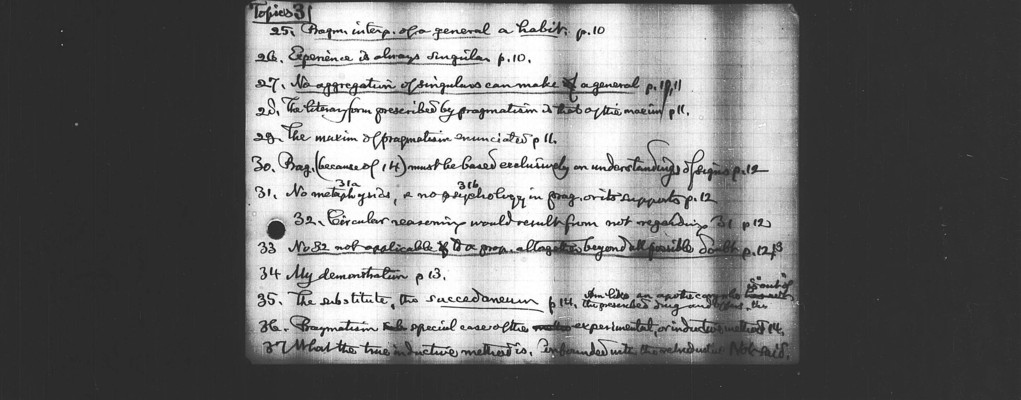 Topics 3
25. Pragm. interp. of a general a habit. p. 10
26. Experience is always singular p. 10.
27. No aggregation of singulars can make a general p. 11
28. The literary form prescribed by pragmatism is that of the maxim p 11.
29. The maxim of pragmatism enunciated p 11.
30. Prag. (because of 14) must be based exclusively on understandings of signs p. 12
31a 31b
31. No metaphysics, & no psychology in prag. or its supports p. 12
32. Circular reasoning would result from not regarding 31 p 12
33 No 32 not applicable to a prop. altogether beyond all possible doubt p. 12, 13
34 My demonstration p 13.
35. The substitute, the succedaneum p 14. Am like an apothecary who is "out of"
the prescribed drug and the
36. Pragmatism special case of the experimental, or inductive method 14.
37 What the true inductive method is. Confounded with the Not said.